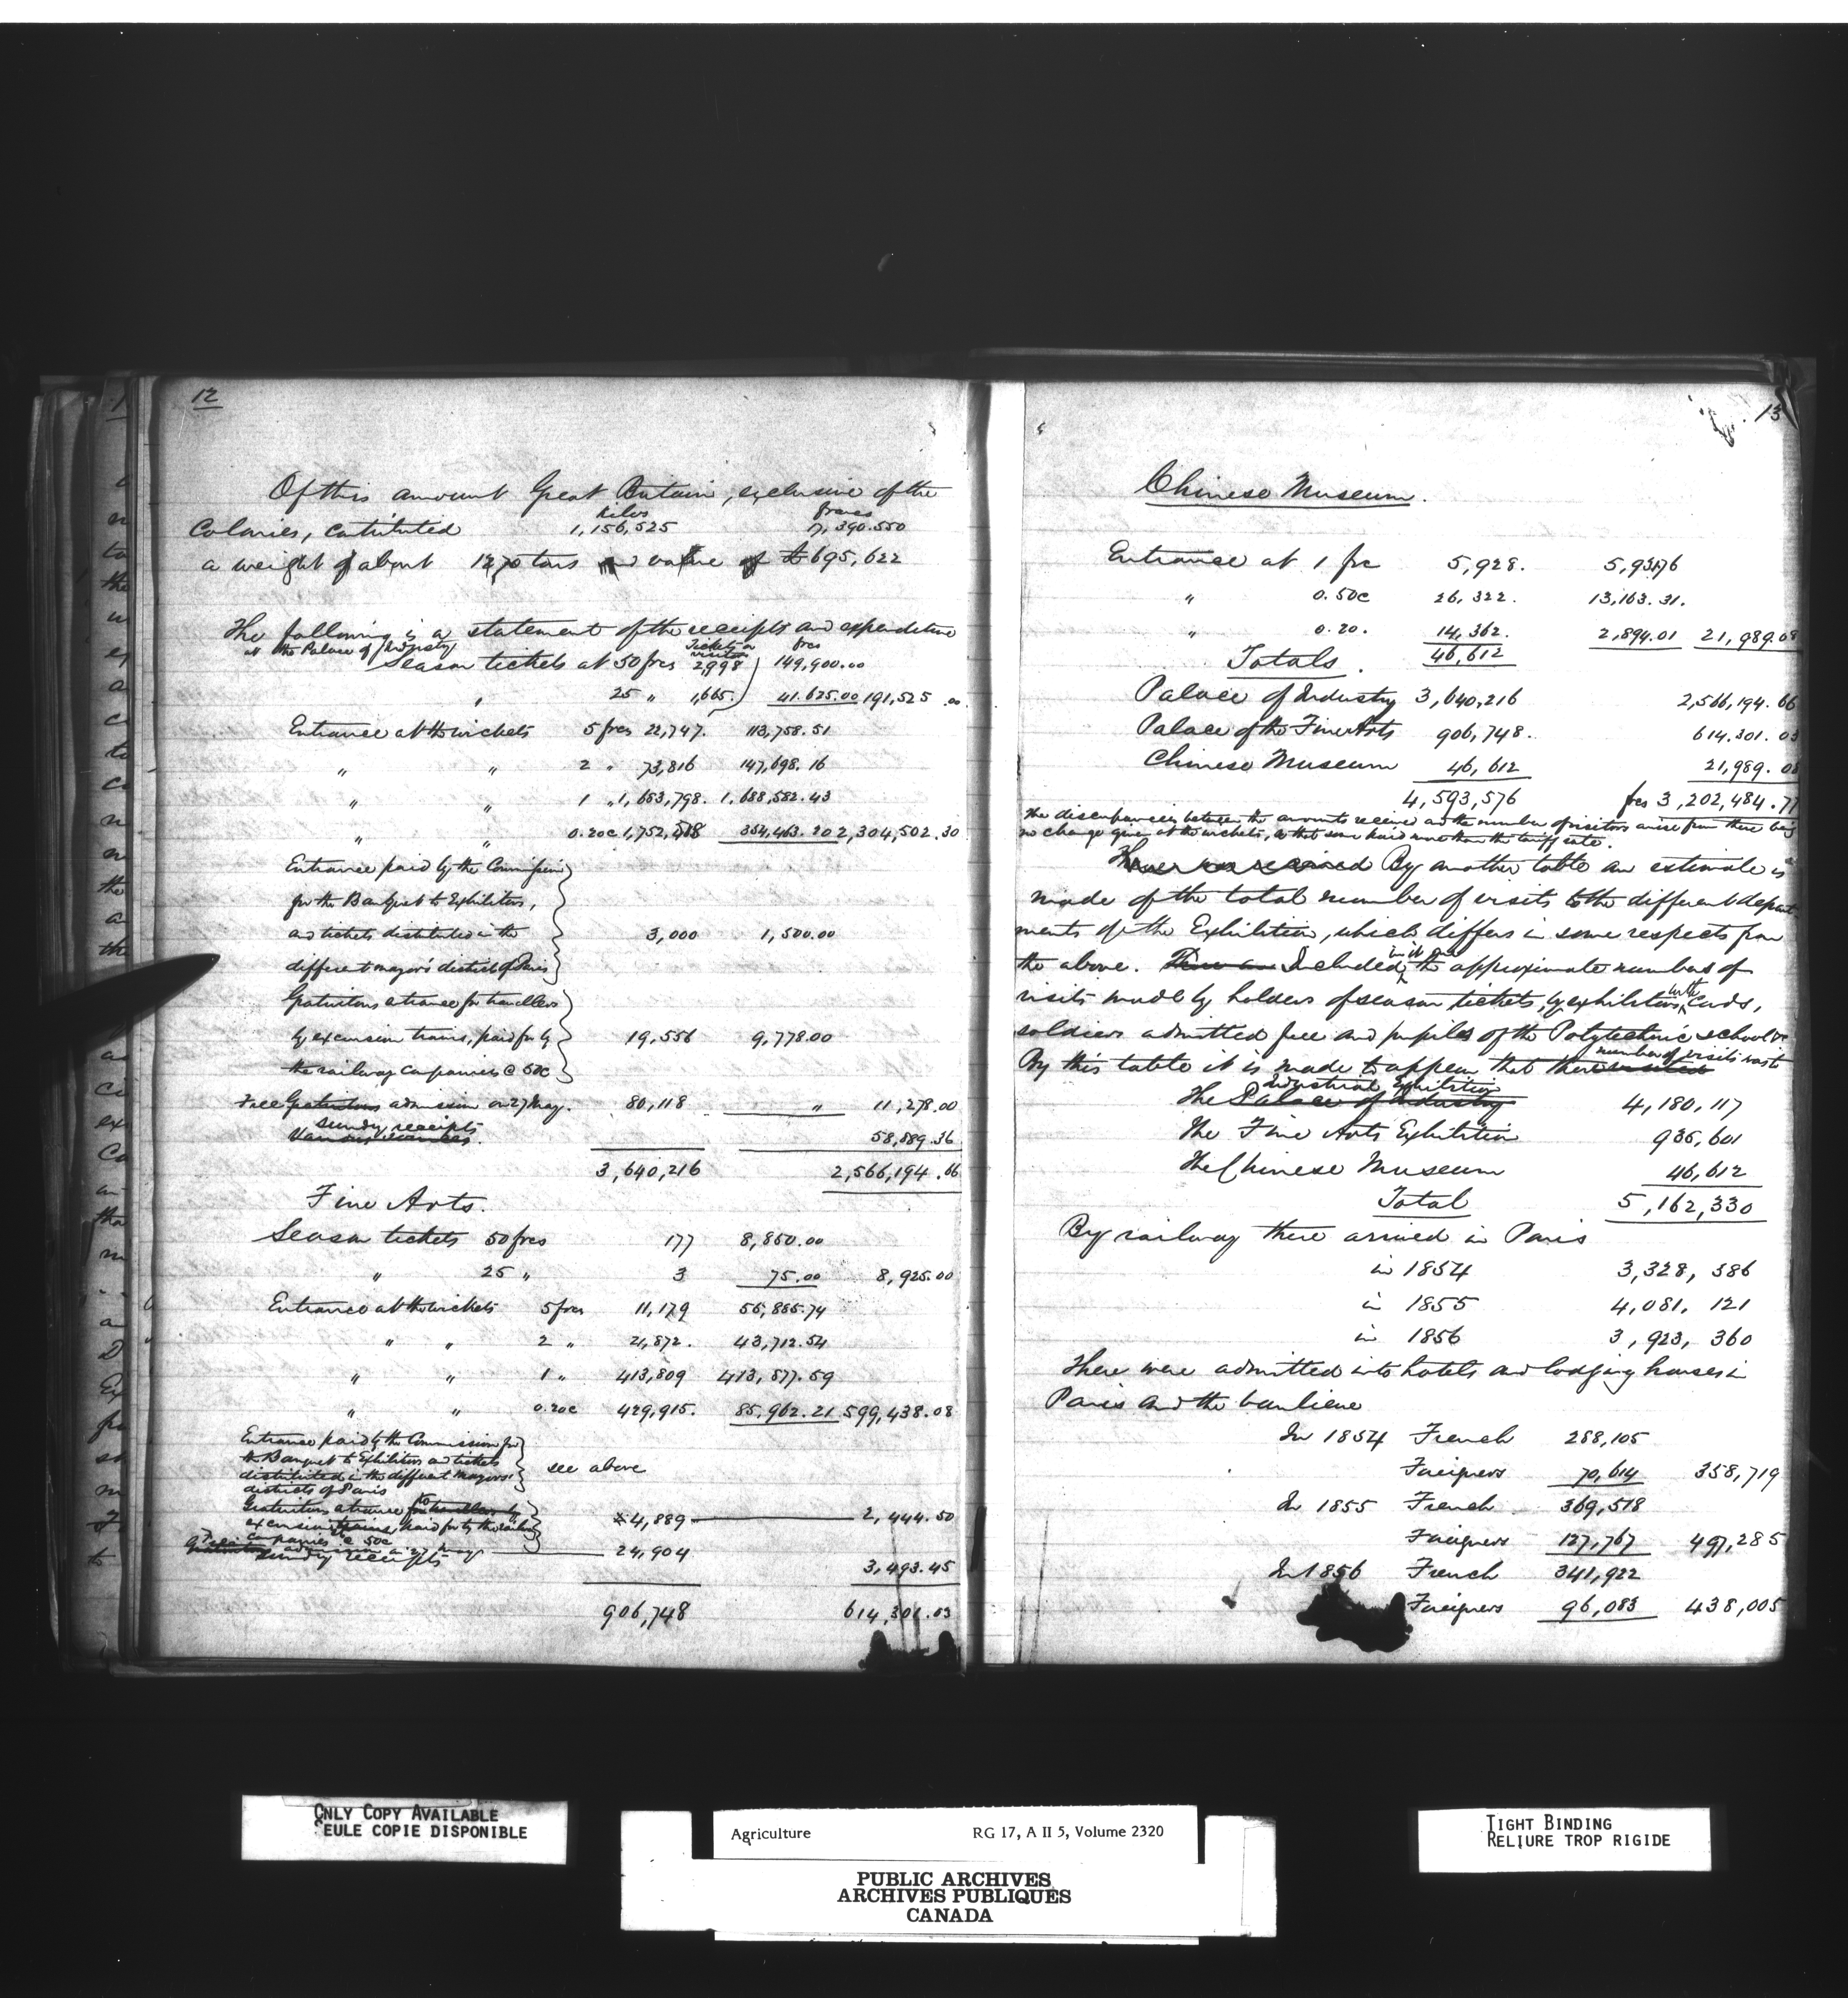 12
Of this amount Great Britain, exclusive of the
kilos francs
Colonies, contributed 1,156,525 17,390.550
a weight of about 1270 tons and value of £695,622
The following is a statement of the receipts and expenditure
at the Palace of Industry Tickets or visitors frcs
Season tickets at 50 frcs 2,998 149,900.00
" 25 " 1,665. 41.625.00 191,525.00
Entrance at the wickets 5 frcs 22,747. 113,758.51
" " 2 " 73,816 147,698.16
" " 1 " 1,683,798. 1,688,582.43
" " 0.20c 1,752,518 354,463.20 2,304,502.30
Entrance paid by the Commission
for the Banquet to Exhibitors,
and tickets distributed in the 3,000 1,500.00
different mayors' districts of Paris
Gratuitous entrance for travellers
by excursion trains, paid for by 19,556 9,778.00
the railway companies @ 50c
Free Gratuitous admission on 27 May. 80,118 " 11,278.00
sundry receipts
Various 58,889.36
3,640,216 2,566,194.66
Fine Arts.
Season tickets 50 frcs 177 8,850.00
" 25 " 3 75.00 8,925.00
Entrance at the wickets 5 frcs 11,179 55,885.74
" " 2 " 21,872. 43,712.54
" " 1 " 413,809 413,877.59
" " 0.20c 429,915. 85,962.21 599,438.08
Entrance paid by the Commission for
the Banquet to Exhibitors and tickets see above
distributed in the different mayors'
districts of Paris
Gratuitous entrance to for travellers by
excursion trains, paid for by the railway 4,889 2,444.50
companies @ 50c
Free Gratuitous admission on 27 May 24,904
sundry receipts 3,493.45
906,748 614,301.03
13
Chinese Museum.
Entrance at 1 frc 5,928. 5,931.76
" 0.50c 26,322. 13,163.31.
" 0.20. 14,362. 2,894.01 21,989.08
46,612
Totals.
Palace of Industry 3,640,216 2,566,194.66
Palace of the Fine Arts 906,748. 614.301.03
Chinese Museum 46,612 21,989.08
4,593,576 frcs 3,202,484.77
The discrepancies between the amounts received and the number of visitors arise from there being
no change given at the wickets, so that some paid more than the tariff rate.
There was received By another table an estimate is
made of the total number of visits to the different depart
ments of the Exhibition, which differs in some respects from
the above. There are Included in it are the approximate number of
visits made by holders of season tickets, by exhibitors with cards,
soldiers admitted free and pupils of the Polytechnic school &c
By this table it is made to appear that there visited number of visits was to
Industrial Exhibition
The Palace of Industry 4,180,117
The Fine Arts Exhibition 935,601
The Chinese Museum 46,612
Total 5,162,330
By railway there arrived in Paris
in 1854 3,328,386
in 1855 4,081.121
in 1856 3,923,360
There were admitted into hotels and lodging houses in
Paris and the banlieue
In 1854 French 288,105
Foreigners 70,614 358,719
In 1855 French 369,518
Foreigners 127,767 497,285
In 1856 French 341,922
Foreigners 96,083 438,005
ONLY COPY AVAILABLE
SEULE COPIE DISPONIBLE
Agriculture RG 17, A II 5, Volume 2320
PUBLIC ARCHIVES
ARCHIVES PUBLIQUES
CANADA
TIGHT BINDING
RELIURE TROP RIGIDE